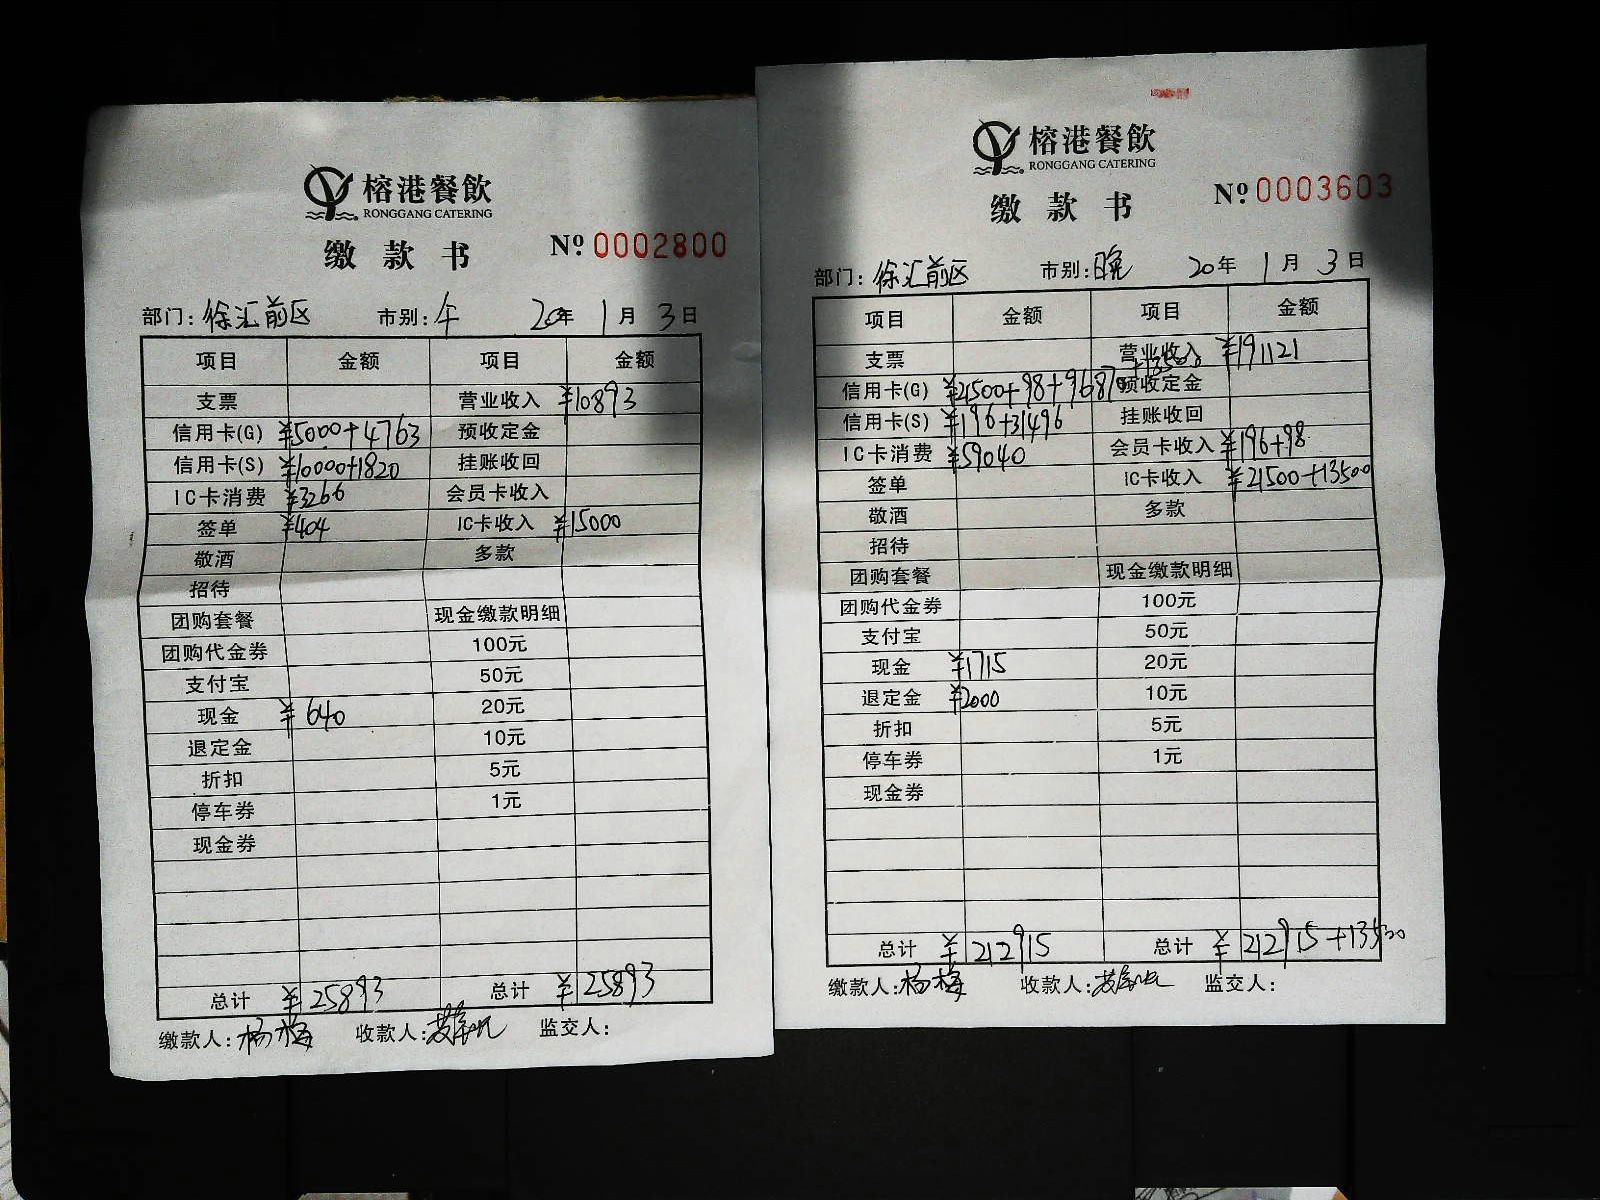 榕港餐飲
RONGGANG CATERING
缴款书
№ 0002800
部门: 徐汇前区 市别: 午 20年 1月 3日
项目 金额 项目 金额
支票 营业收入 ¥10893
信用卡(G) ¥5000+4763 预收定金
信用卡(S) ¥10000+1820 挂账收回
IC卡消费 ¥3266 会员卡收入
签单 ¥404 IC卡收入 ¥15000
敬酒 多款
招待
团购套餐 现金缴款明细
团购代金券 100元
支付宝 50元
现金 ¥640 20元
退定金 10元
折扣 5元
停车券 1元
现金券
总计 ¥25893 总计 ¥25893
缴款人: 杨梅 收款人: 监交人:
榕港餐飲
RONGGANG CATERING
缴款书
№ 0003603
部门: 徐汇前区 市别: 晚 20年 1月 3日
项目 金额 项目 金额
支票 营业收入 ¥191121
信用卡(G) ¥21500+98+96870+13500 预收定金
信用卡(S) ¥196+31496 挂账收回
IC卡消费 ¥59040 会员卡收入 ¥196+98
签单 IC卡收入 ¥21500+13500
敬酒 多款
招待
团购套餐 现金缴款明细
团购代金券 100元
支付宝 50元
现金 ¥1715 20元
退定金 ¥2000 10元
折扣 5元
停车券 1元
现金券
总计 ¥212915 总计 ¥212915+13500
缴款人: 杨梅 收款人: 监交人: